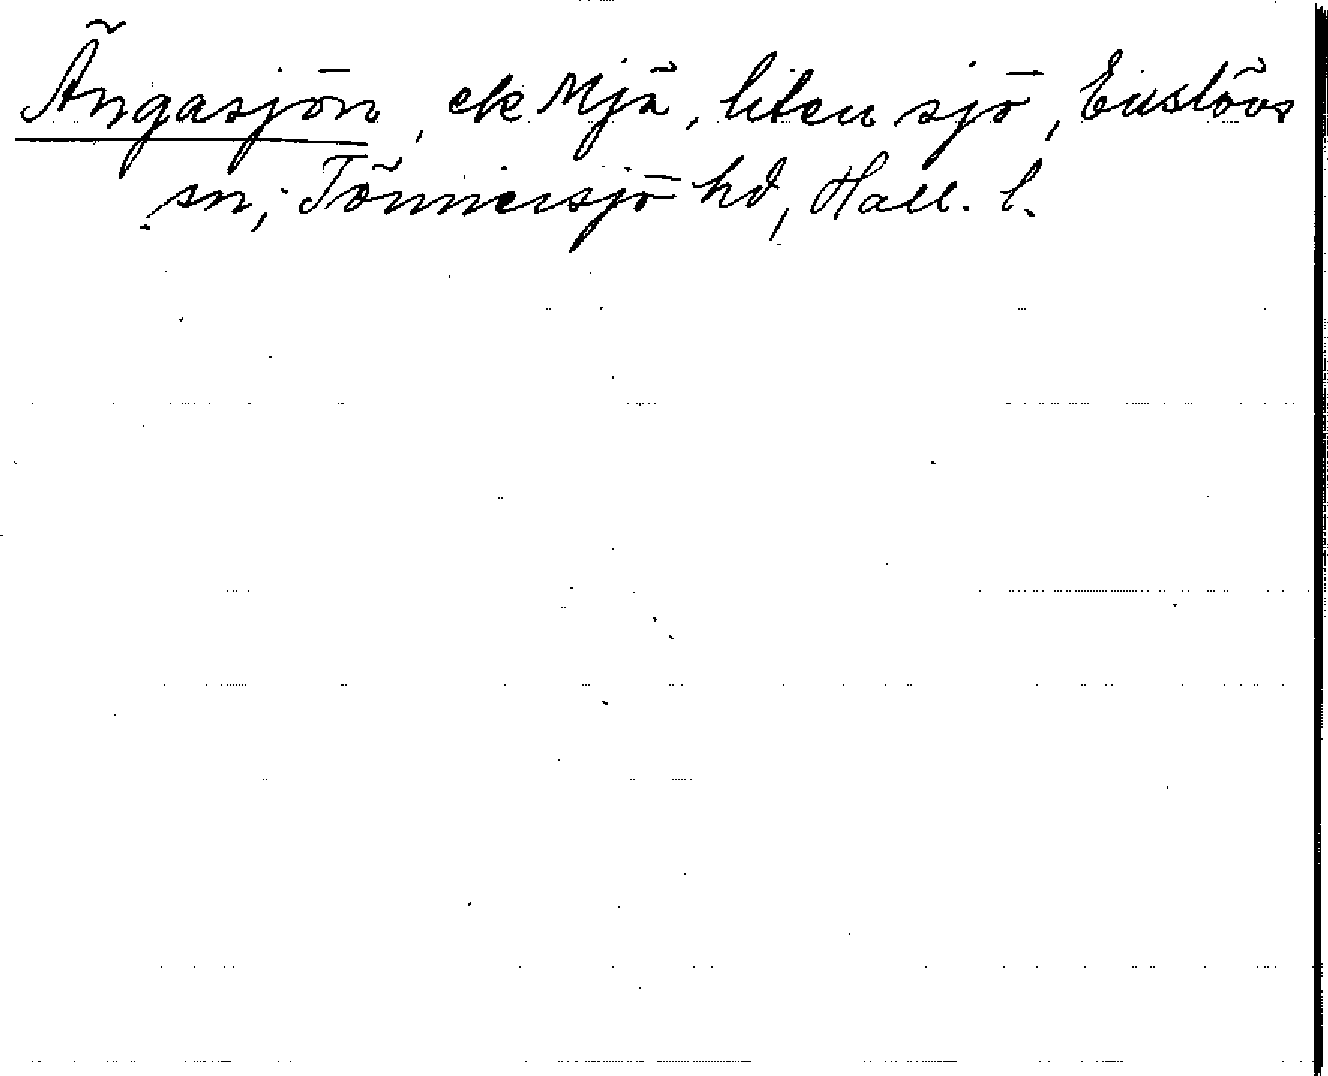 Ängasjön, ek Mjä, liten sjö, Enslövs
sn, Tönnersjö hd, Hall. l.